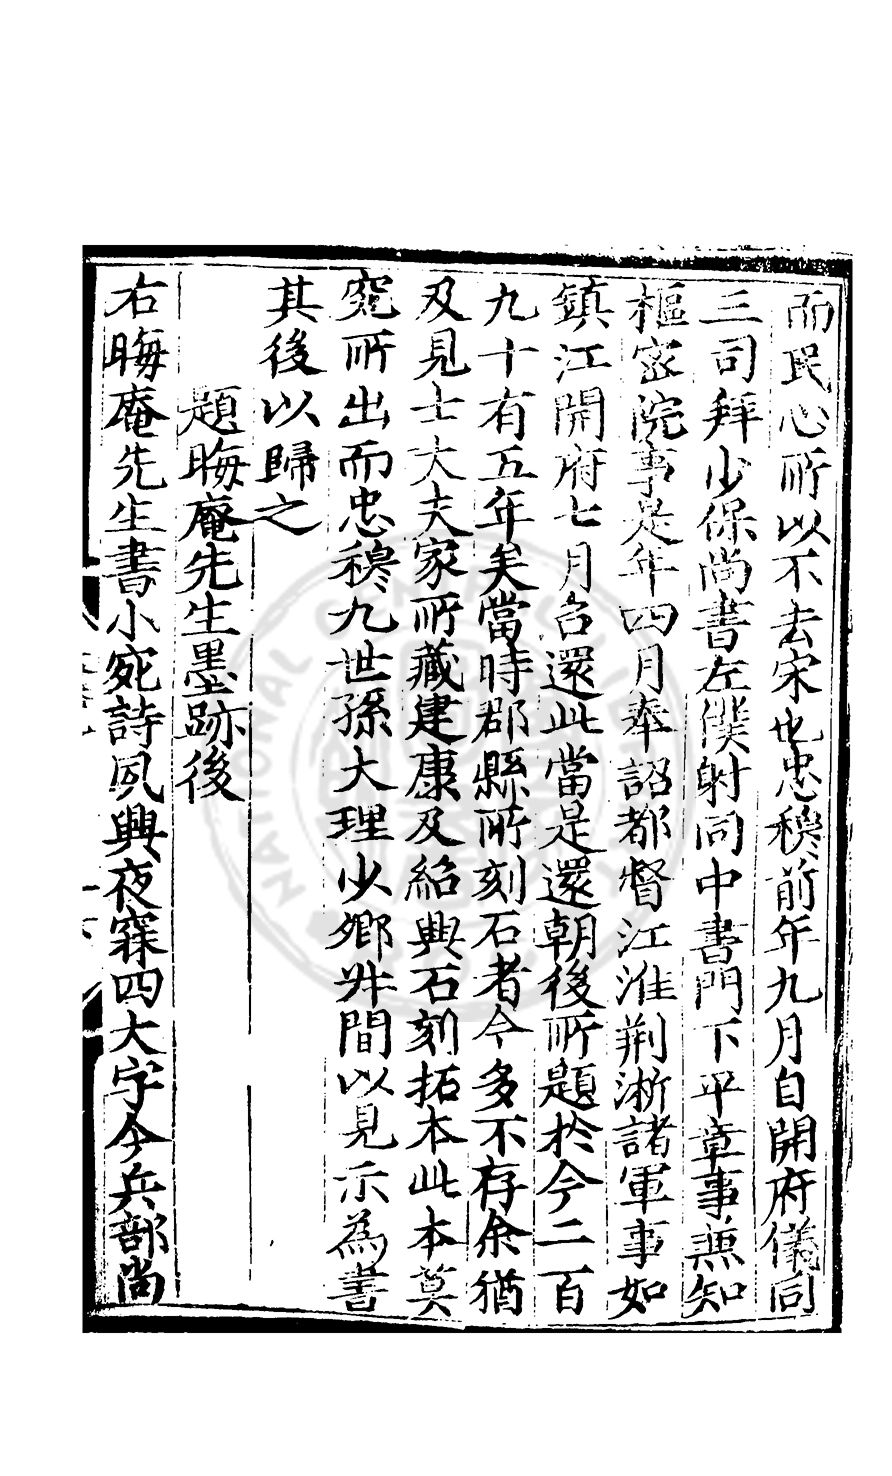 而民心所以不去宋也忠穆前年九月自開府儀同
三司拜少保尚書左僕射同中書門下平章事兼知
樞密院事是年四月奉詔都督江淮荆浙諸軍事如
鎮江開府七月召還此當是還朝後所題於今二百
九十有五年矣當時郡縣所刻石者今多不存余猶
及見士大夫家所藏建康及紹興石刻拓本此本莫
究所出而忠穆九世孫大理少卿升間以見示為書
其後以歸之
題晦庵先生墨跡後
右晦庵先生書小宛詩夙興夜寐四大字今兵部尚
NATIONAL CENTRAL LIBRARY